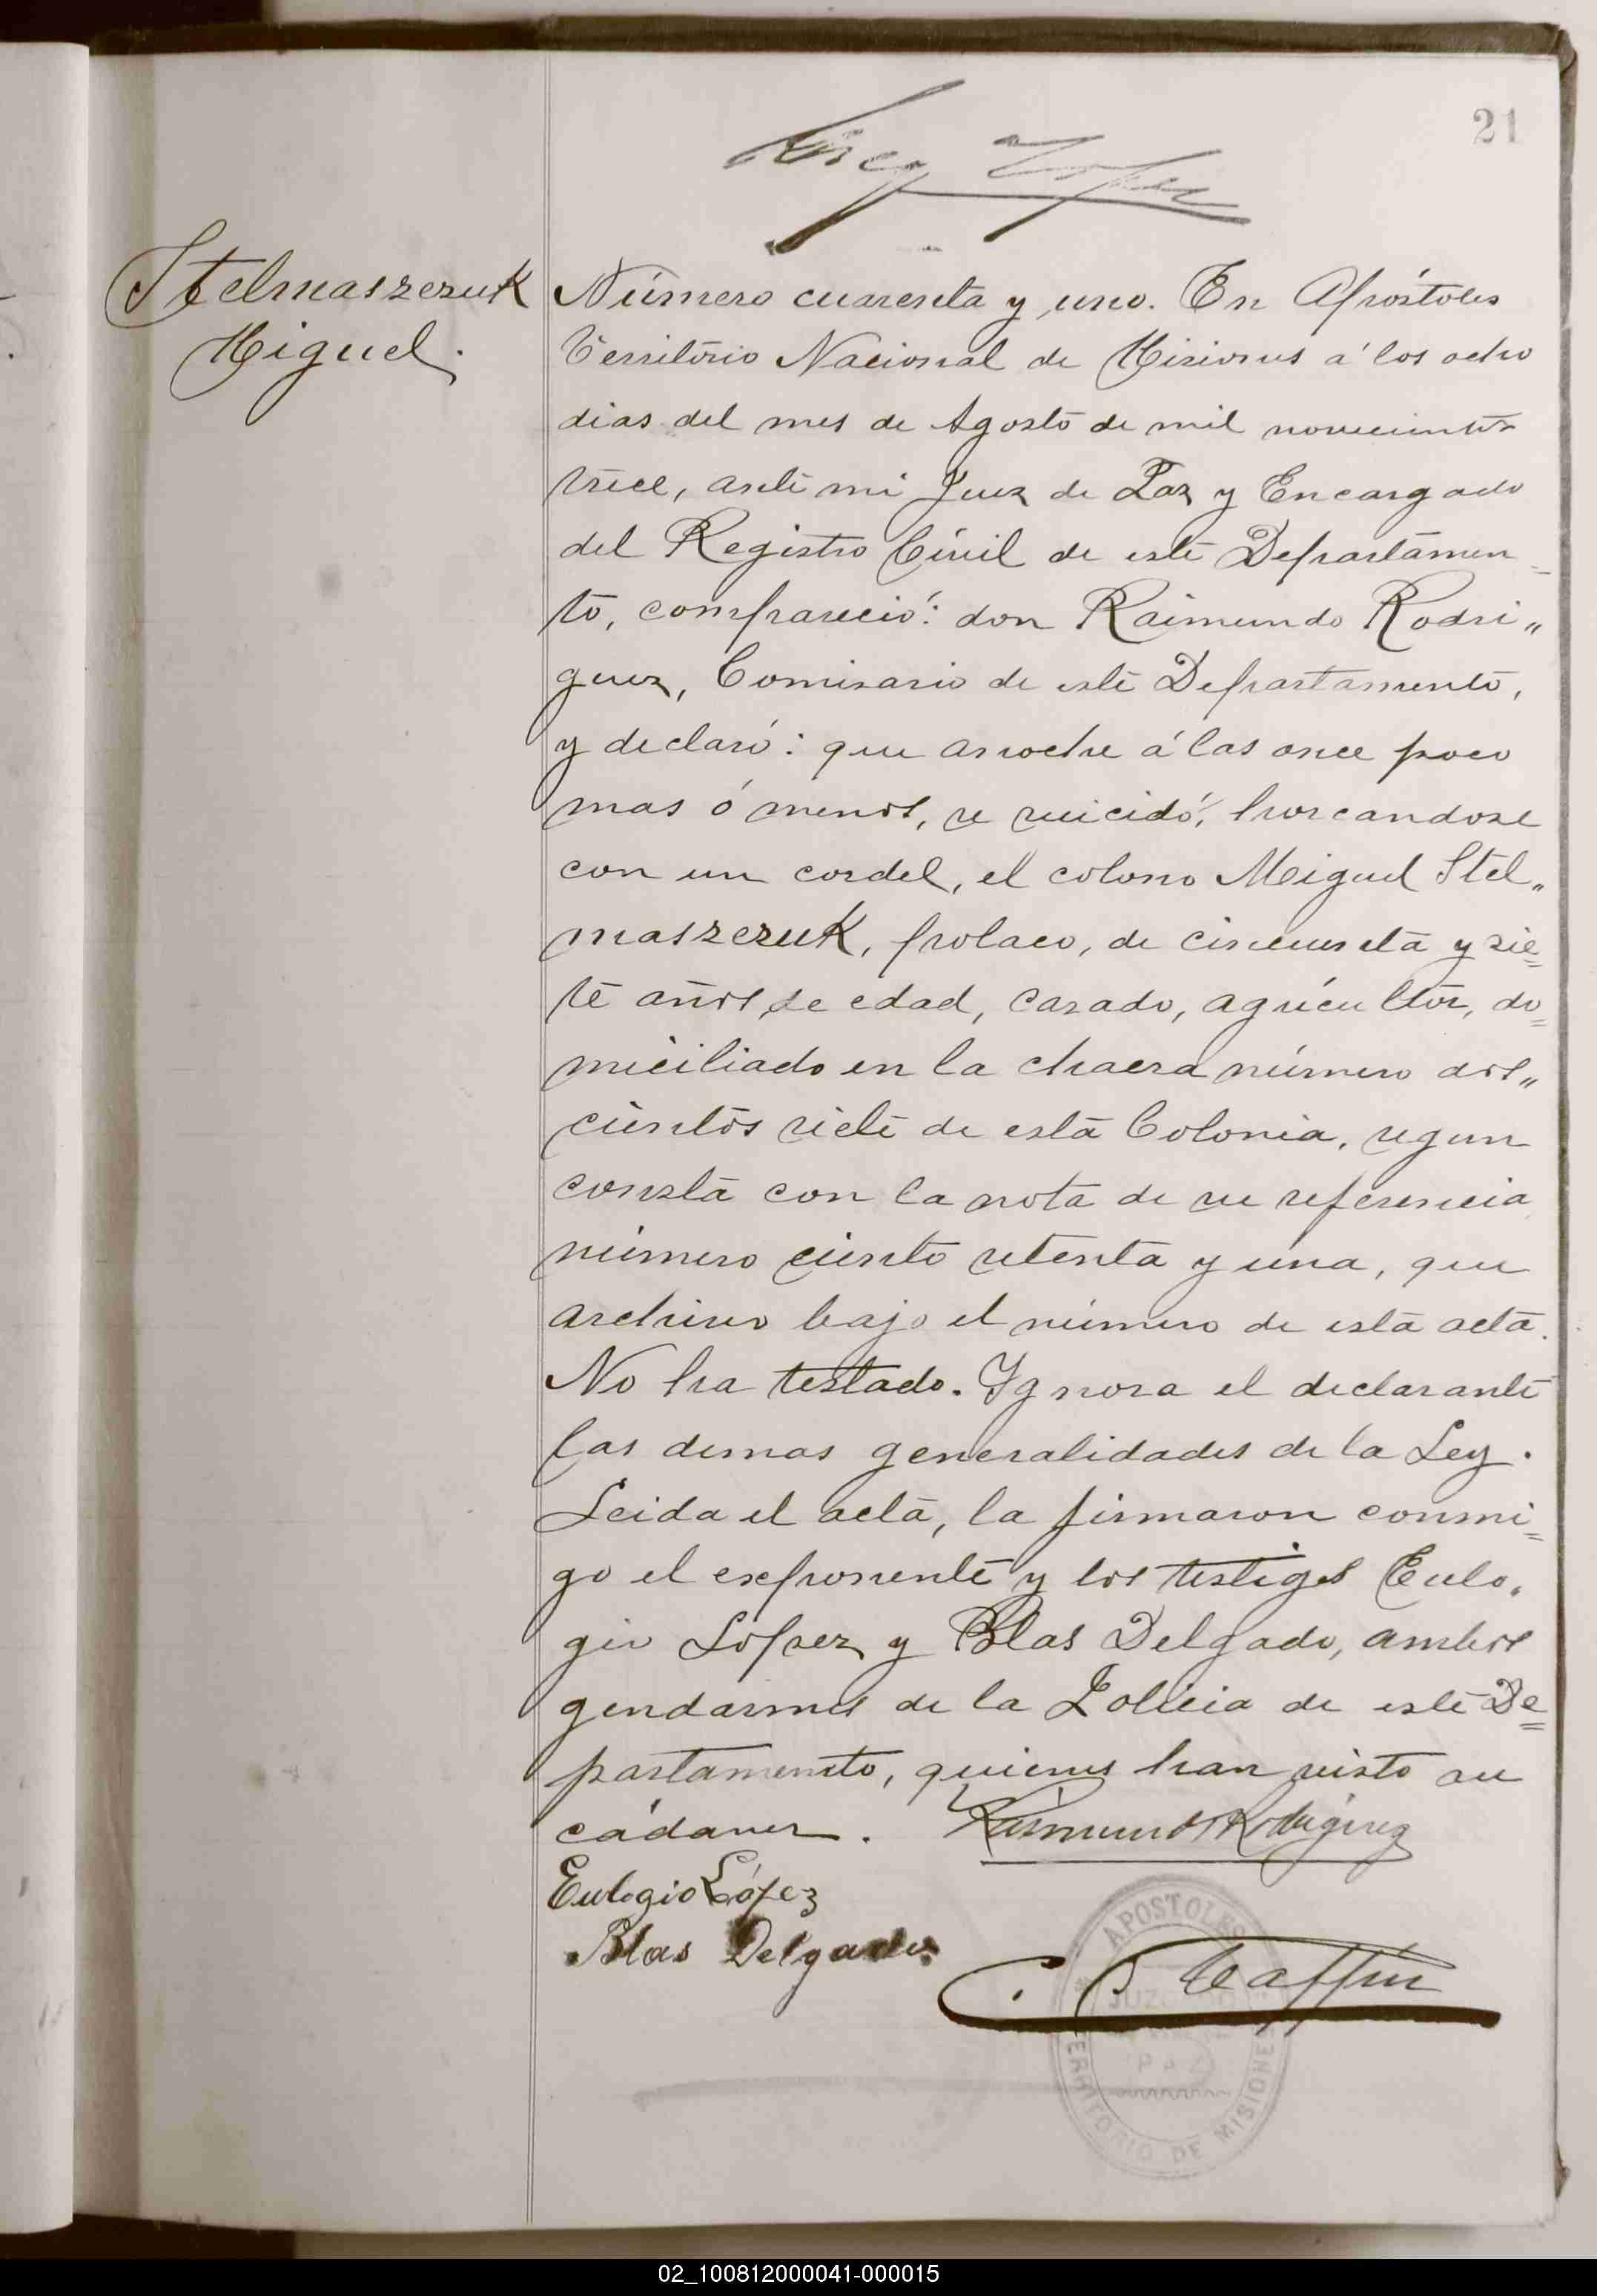 21
Stelmaszczuk
Miguel.
Número cuarenta y uno. En Apóstoles
Territorio Nacional de Misiones á los ocho
dias del mes de Agosto de mil novecientos
trece, ante mi Juez de Paz y Encargado
del Registro Civil de este Departamen-
to, compareció: don Raimundo Rodri„
guez, Comisario de este Departamento,
y declaró: que anoche á las once poco
mas ó menos, se suicidó, horcandose
con un cordel, el colono Miguel Stel„
maszczuk, polaco, de cincuenta y sie=
te años de edad, casado, agricultor, do=
miciliado en la chacra número dos„
cientos siete de esta Colonia, segun
consta con la nota de su referencia
número ciento setenta y una, que
archivo bajo el número de esta acta.
No ha testado. Ignora el declarante
las demas generalidades de la Ley.
Leida el acta, la firmaron conmi=
go el exponente y los testigos Eulo„
gio Lopez y Blas Delgado, ambos
gendarmes de la Policia de este De=
partamento, quienes han visto su
cádaver. Raimundo Rodriguez
Eulogio López
Blas Delgado
APOSTOLES
JUZ
PAZ
TERRITORIO DE MISIONES
02_100812000041-000015